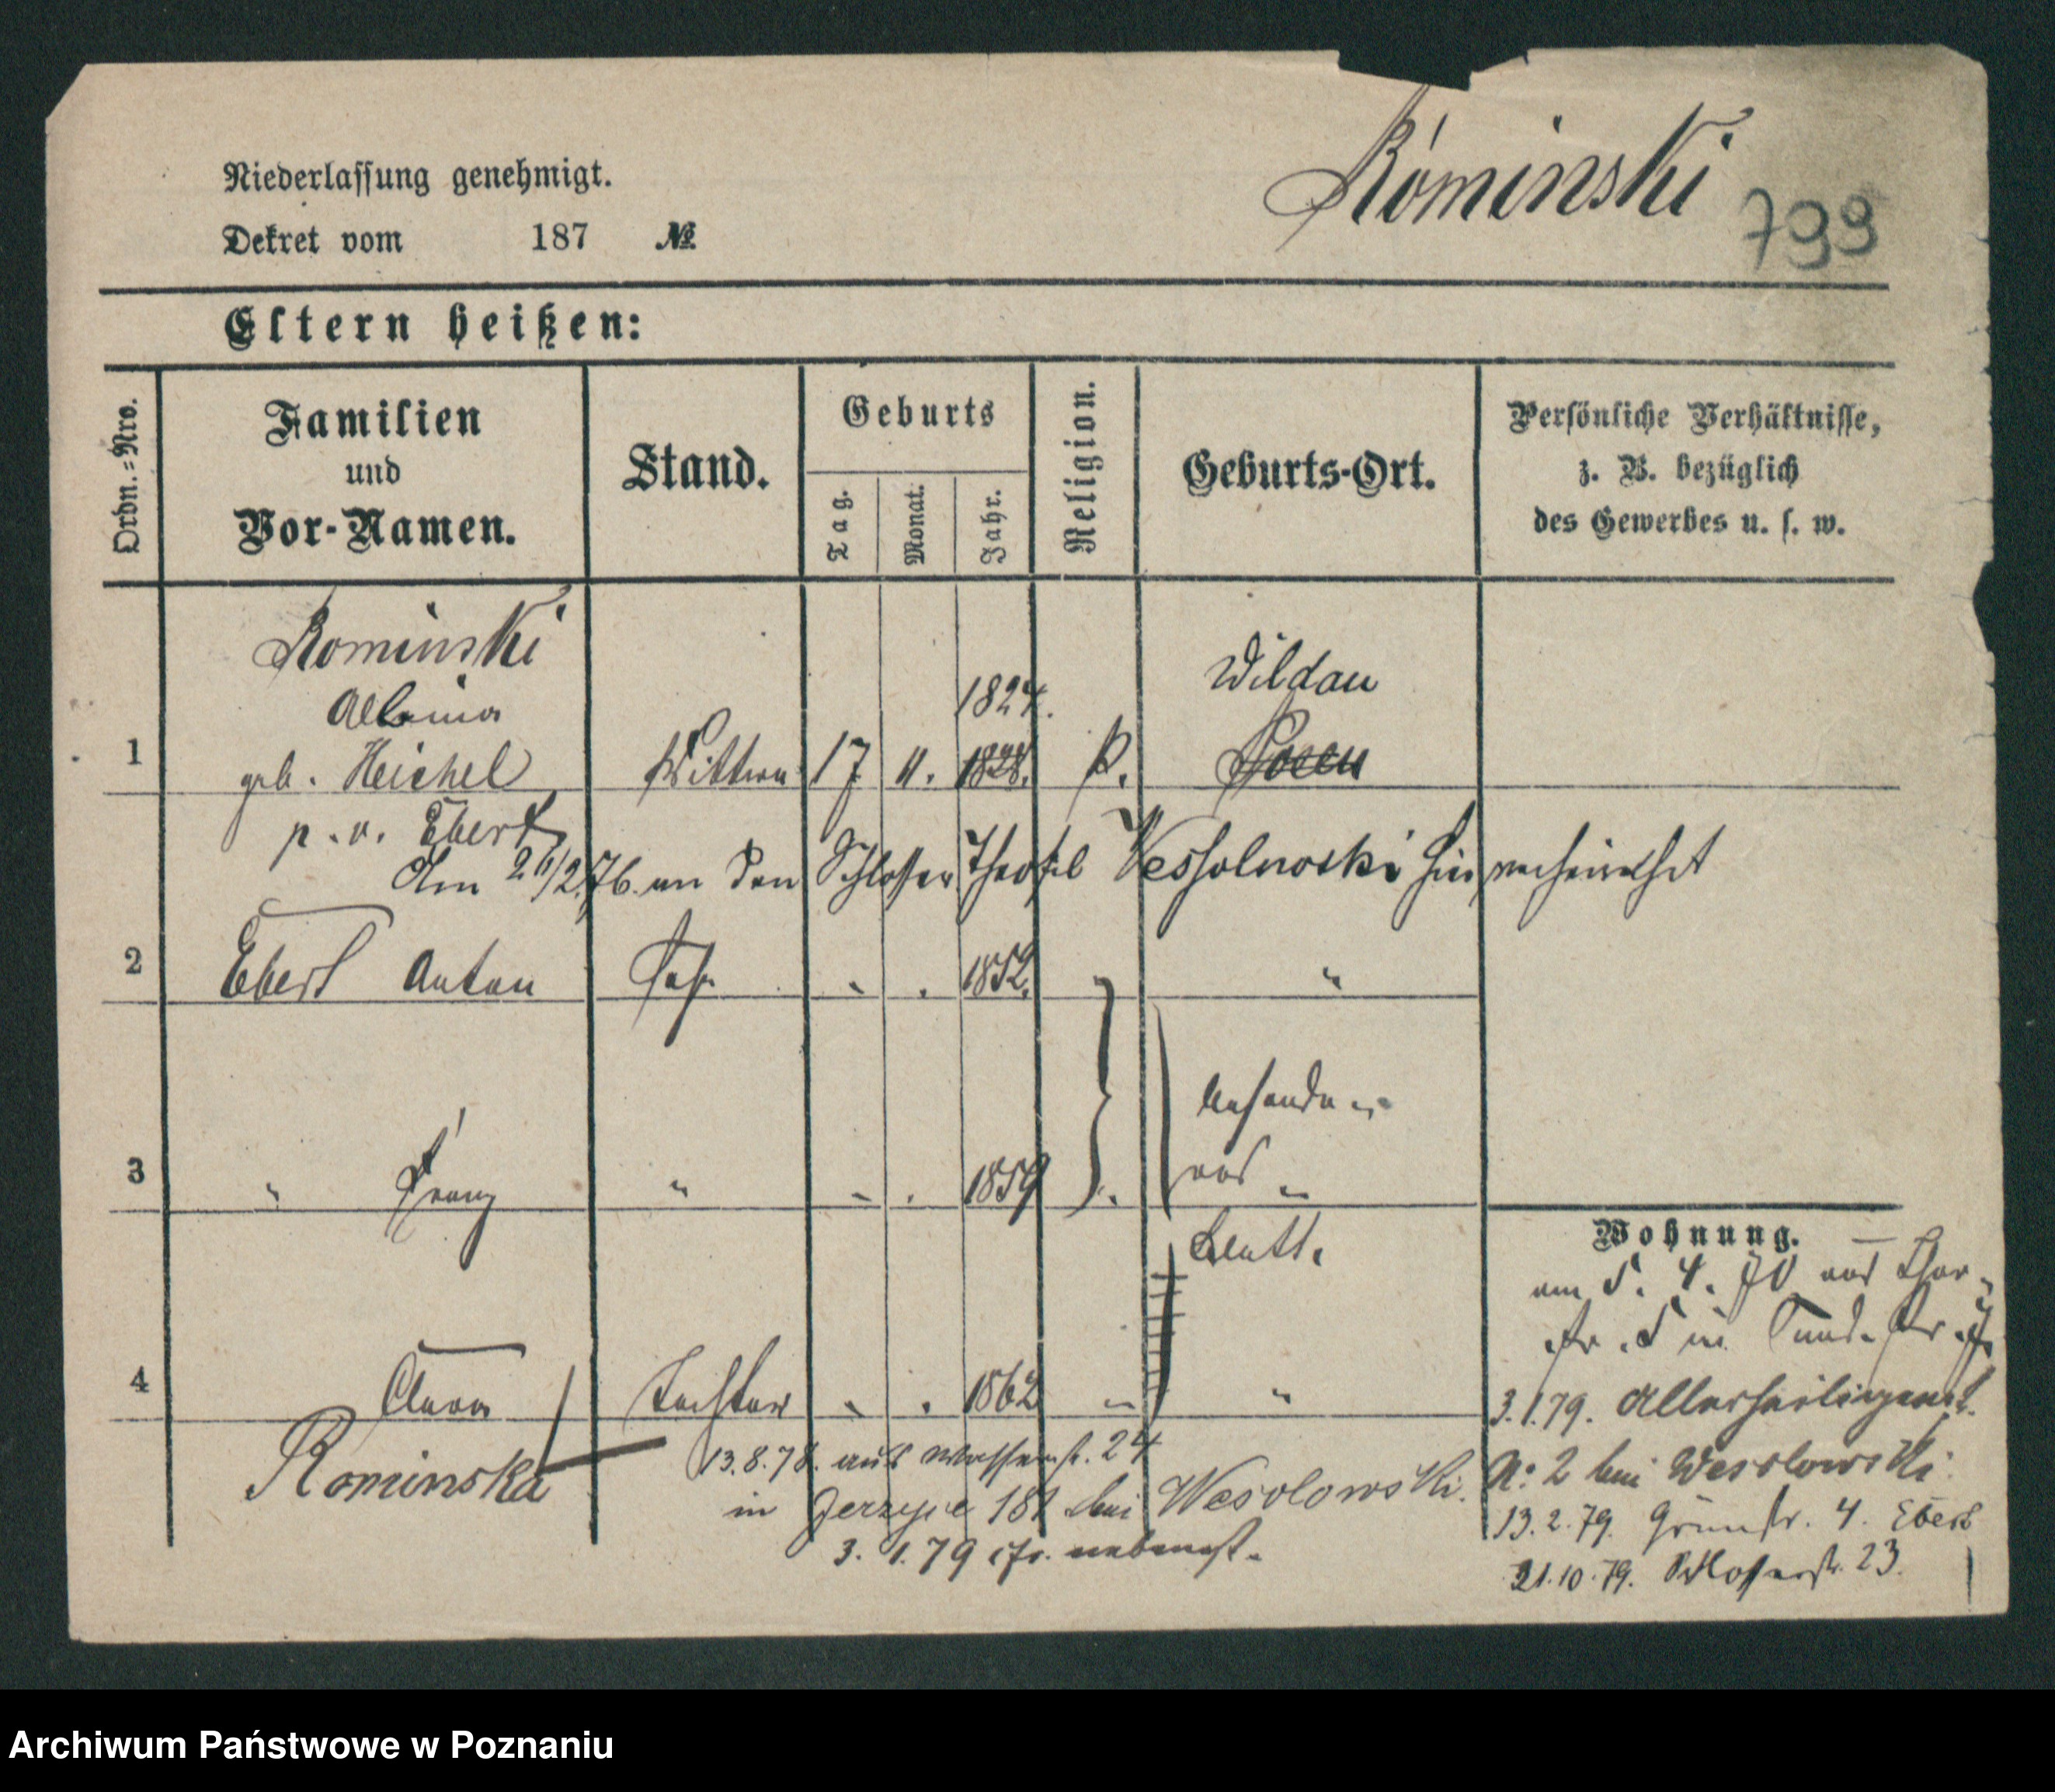 Rominski
799
Niederlassung genehmigt.
Dekret vom 187 №
Eltern heißen:
Ordn.=Nro.
Familien
und
Vor-Namen.
Stand.
Geburts
Tag.
Monat.
Jahr.
Religion.
Geburts-Ort.
Persönliche Verhältnisse,
z. B. bezüglich
des Gewerbes u. s. w.
Rominski
Albina
1824.
Wildau
1 geb. Heichel Wittwe 17 11. 1828. k. Posen
p. v. Ebert
Am 26/2.76. an den Schlosser Theofil Wessolowski hier verheirathet
2 Ebert Anton Sohn " . 1852. "
3 " Franz " " . 1859
aus
Wohnung.
am 5. 4. 70 aus Thor-
str. 5 in
4 Clara Tochter " . 1862 " "
3.1.79. Allerheiligenst.
Rominska
13.8.78. aus Wasserstr. 24
N: 2 bei Wesolowski.
in Jerzyce 181 bei Wesolowski.
13.2.79. Grünstr. 4. Ebert
3. 1. 79 cfr. nebenst.
21.10.79. Schlosserstr. 23.
Archiwum Państwowe w Poznaniu